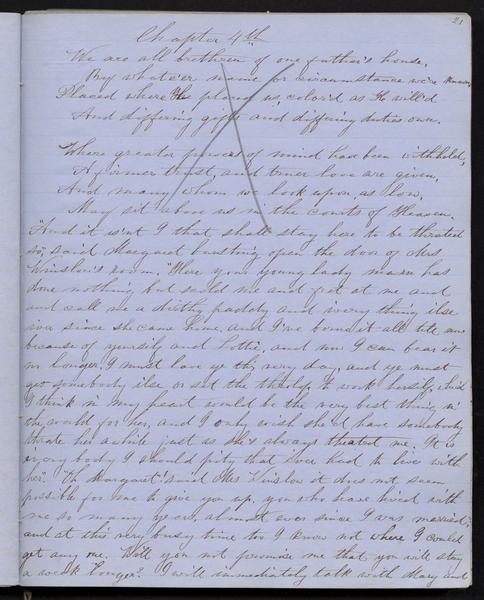 21
Chapter 4th
We are all brethren of one father's house,
By whate'er name or circumstance we're known,
Placed where He placed us, color'd as He will'd
And differing gifts and differing duties own.
Where greater powers of mind have been withheld,
A firmer trust, and truer love are given,
And many whom we look upon as low,
May sit above us in the courts of Heaven.
"And it isn't I that shall stay here to be thrated
so," said Margaret bursting open the door of Mrs
Winslow's room, "Here your young lady mara has
done nothing but scold me and fret at me and
and call me a dirthy and ivery thing ilse
iver since she came home, and I've borne it all till now
because of yoursilf and Lottie, and now I can bear it
no longer; I must leave ye this very day, and ye must
get somebody ilse or set the to work hersilf, which
I think in my heart would be the very best thing in
the world for her, and I only wish she'd have somebody
thrate her awhile just as she's always thrated me. It is
ivery body I should pity that iver had to live with
her." "Oh Margaret!" said Mrs Winslow it does not seem
possible for me to give you up, you who have lived with
me so many years, almost ever since I was married;
and at this very busy time too I know not where I could
get any one. Will you not promise me that you will stay
a week longer? I will immediately talk with Mary and